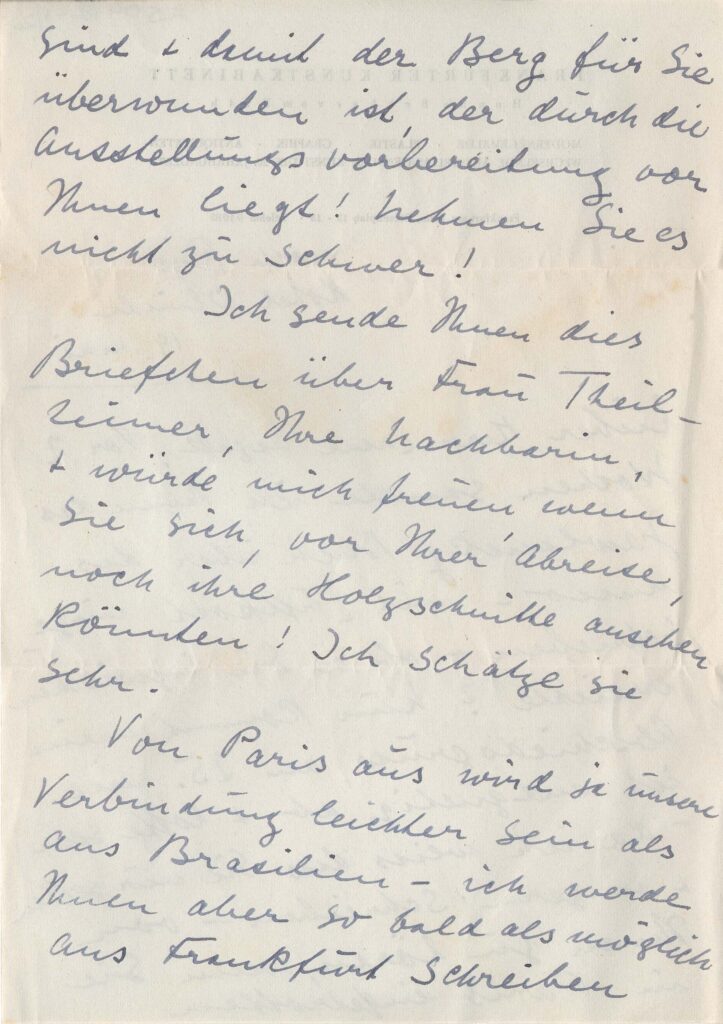 sind & damit der Berg für Sie
überwunden ist, der durch die
Ausstellungsvorbereitung vor
Ihnen liegt! Nehmen Sie es
nicht zu schwer!
Ich sende Ihnen dies
Briefchen über Frau Theil-
heimer, Ihre Nachbarin,
& würde mich freuen wenn
Sie sich, vor Ihrer Abreise,
noch ihre Holzschnitte ansehen
könnten! Ich schätze sie
sehr.
Von Paris aus wird ja unsere
Verbindung leichter sein als
aus Brasilien – ich werde
Ihnen aber so bald als möglich
aus Frankfurt schreiben